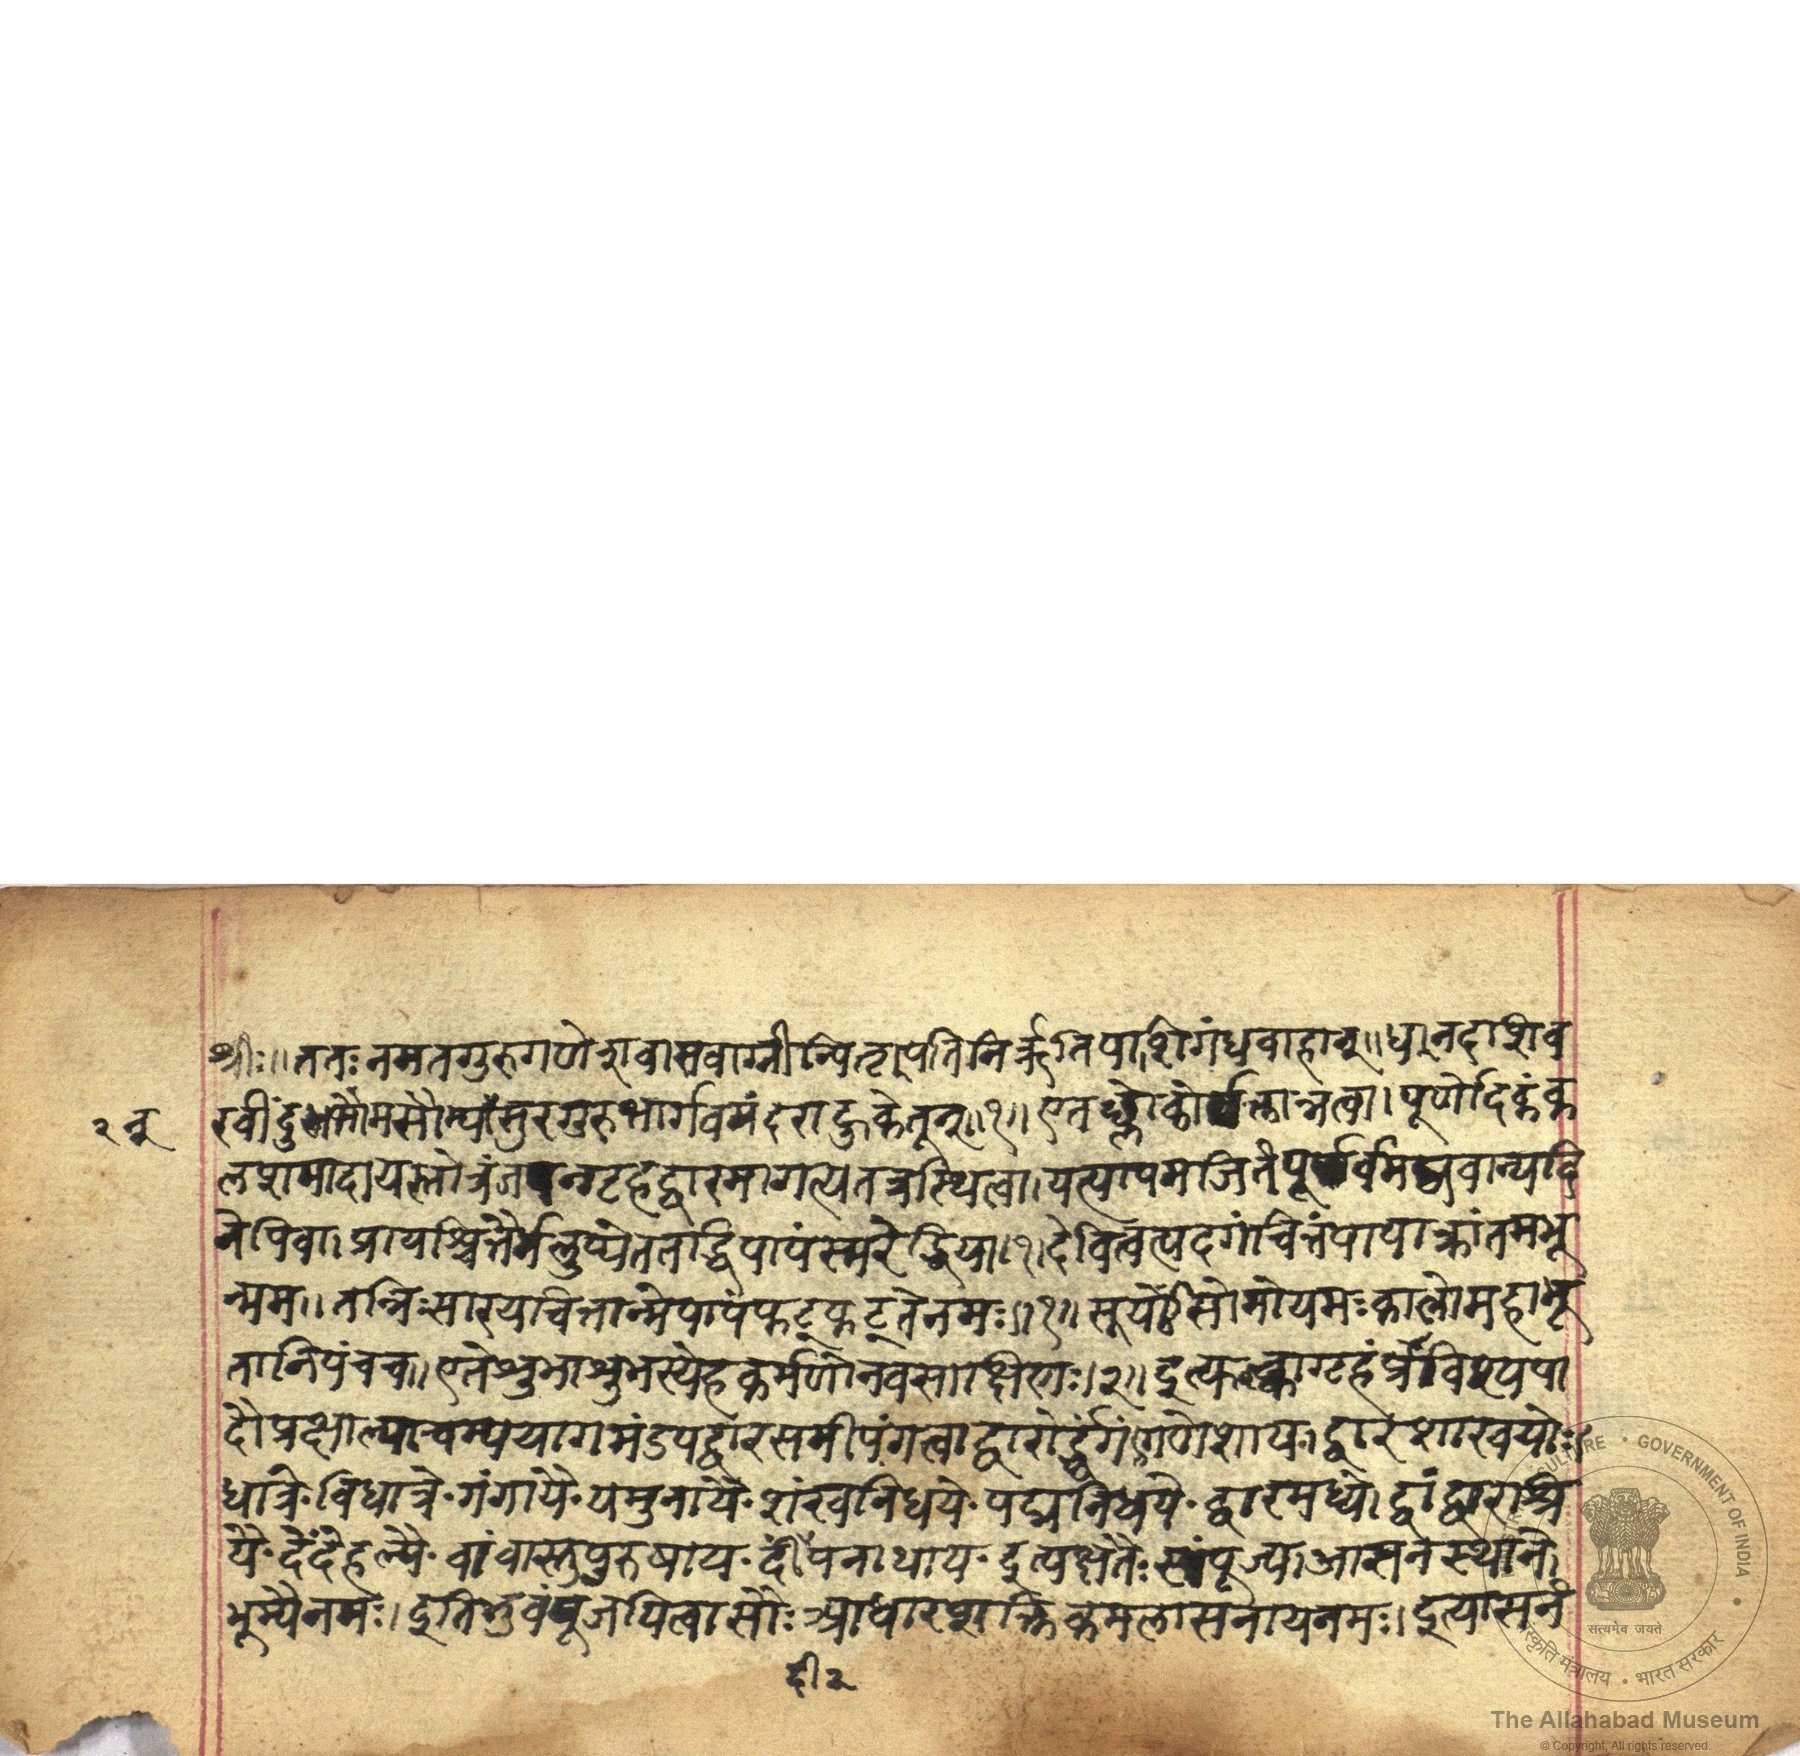 श्रीः॥ ततः नमत गुरुगणेशवासवाग्नीन्पितृपतिनिर्ऋतिपाशिगंधवाहान्॥ धनदाशिव
रवींदुभौमसौम्यासुरगुरुभार्गवमंदराहुकेतून्॥१॥ एत नत्वा। पूर्णोदकंक
२ नु
लशमादायस्तोत्रंजपन्गृहद्वारमागत्यतत्रस्थित्वा। यत्पापमर्जितं
नेपिवा। प्रायश्चित्तैर्नलुप्येततद्धिपापंस्मरेद्धिया।१। देवित्वत्पदगंचित्तंपापाक्रांतमभू
न्मम॥ तन्निःसारयचित्तान्मेपापंफट्फट्तेनमः॥१॥ सूर्यःसोमोयमःकालोमहाभू
तानिपंचच॥ एतेशुभाशुभस्येहकर्मणोनवसाक्षिणः॥२॥ इत्युक्त्वागृहंप्रविश्यपा
दौप्रक्षाल्याचम्ययागमंडपद्वारसमीपंगत्वाद्वारोर्द्ध्वेगंगणेशाय। द्वारशाखयोः।
धात्रे॰ विधात्रे॰ गंगायै॰ यमुनायै॰ शंखनिधये॰ पद्मनिधये॰ द्वारमध्ये। द्वांद्वारश्रि
यै॰ देंदेहल्यै॰ वांवास्तुपुरुषाय॰ दींपनाथाय॰ इत्यक्षतैः संपूज्य। आसनस्थाने।
भूम्यैनमः। इतिभुवंपूजयित्वासौः आधारशक्तिकमलासनायनमः। इत्यासनं
दी २
CULTURE • GOVERNMENT OF INDIA •
सत्यमेव जयते
संस्कृति मंत्रालय • भारत सरकार
The Allahabad Museum
© Copyright, All rights reserved.